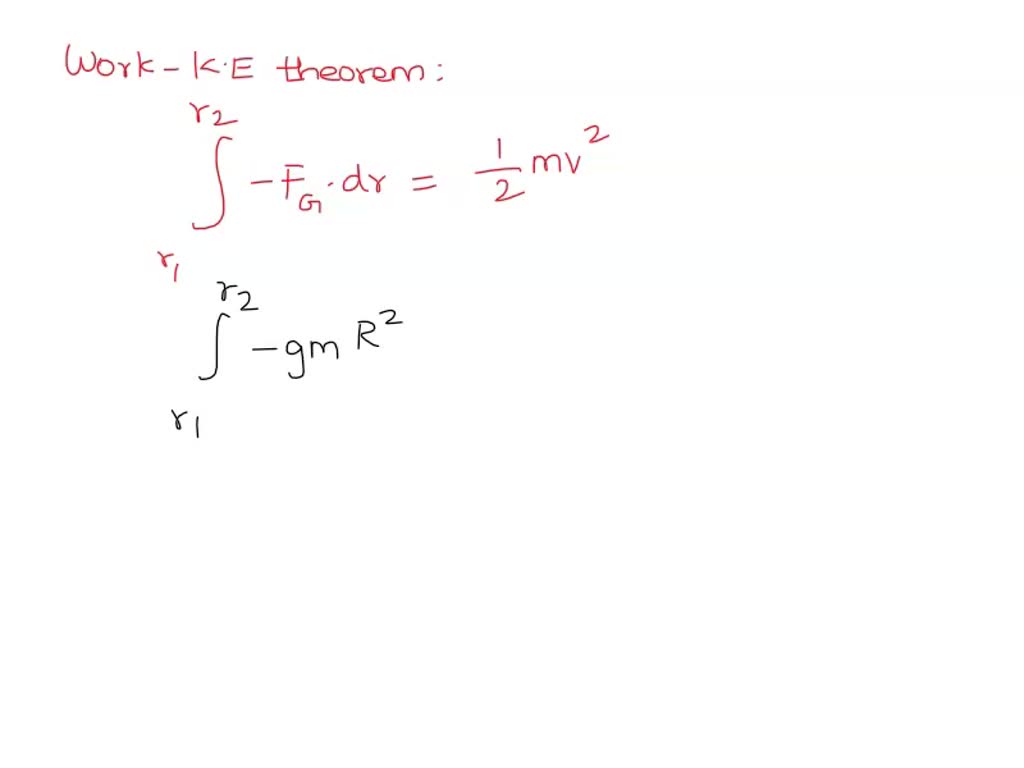 Work - K.E theorem:
∫_{r1}^{r2} -F_G . dr = 1/2 mv^2
∫_{r1}^{r2} -gm R^2